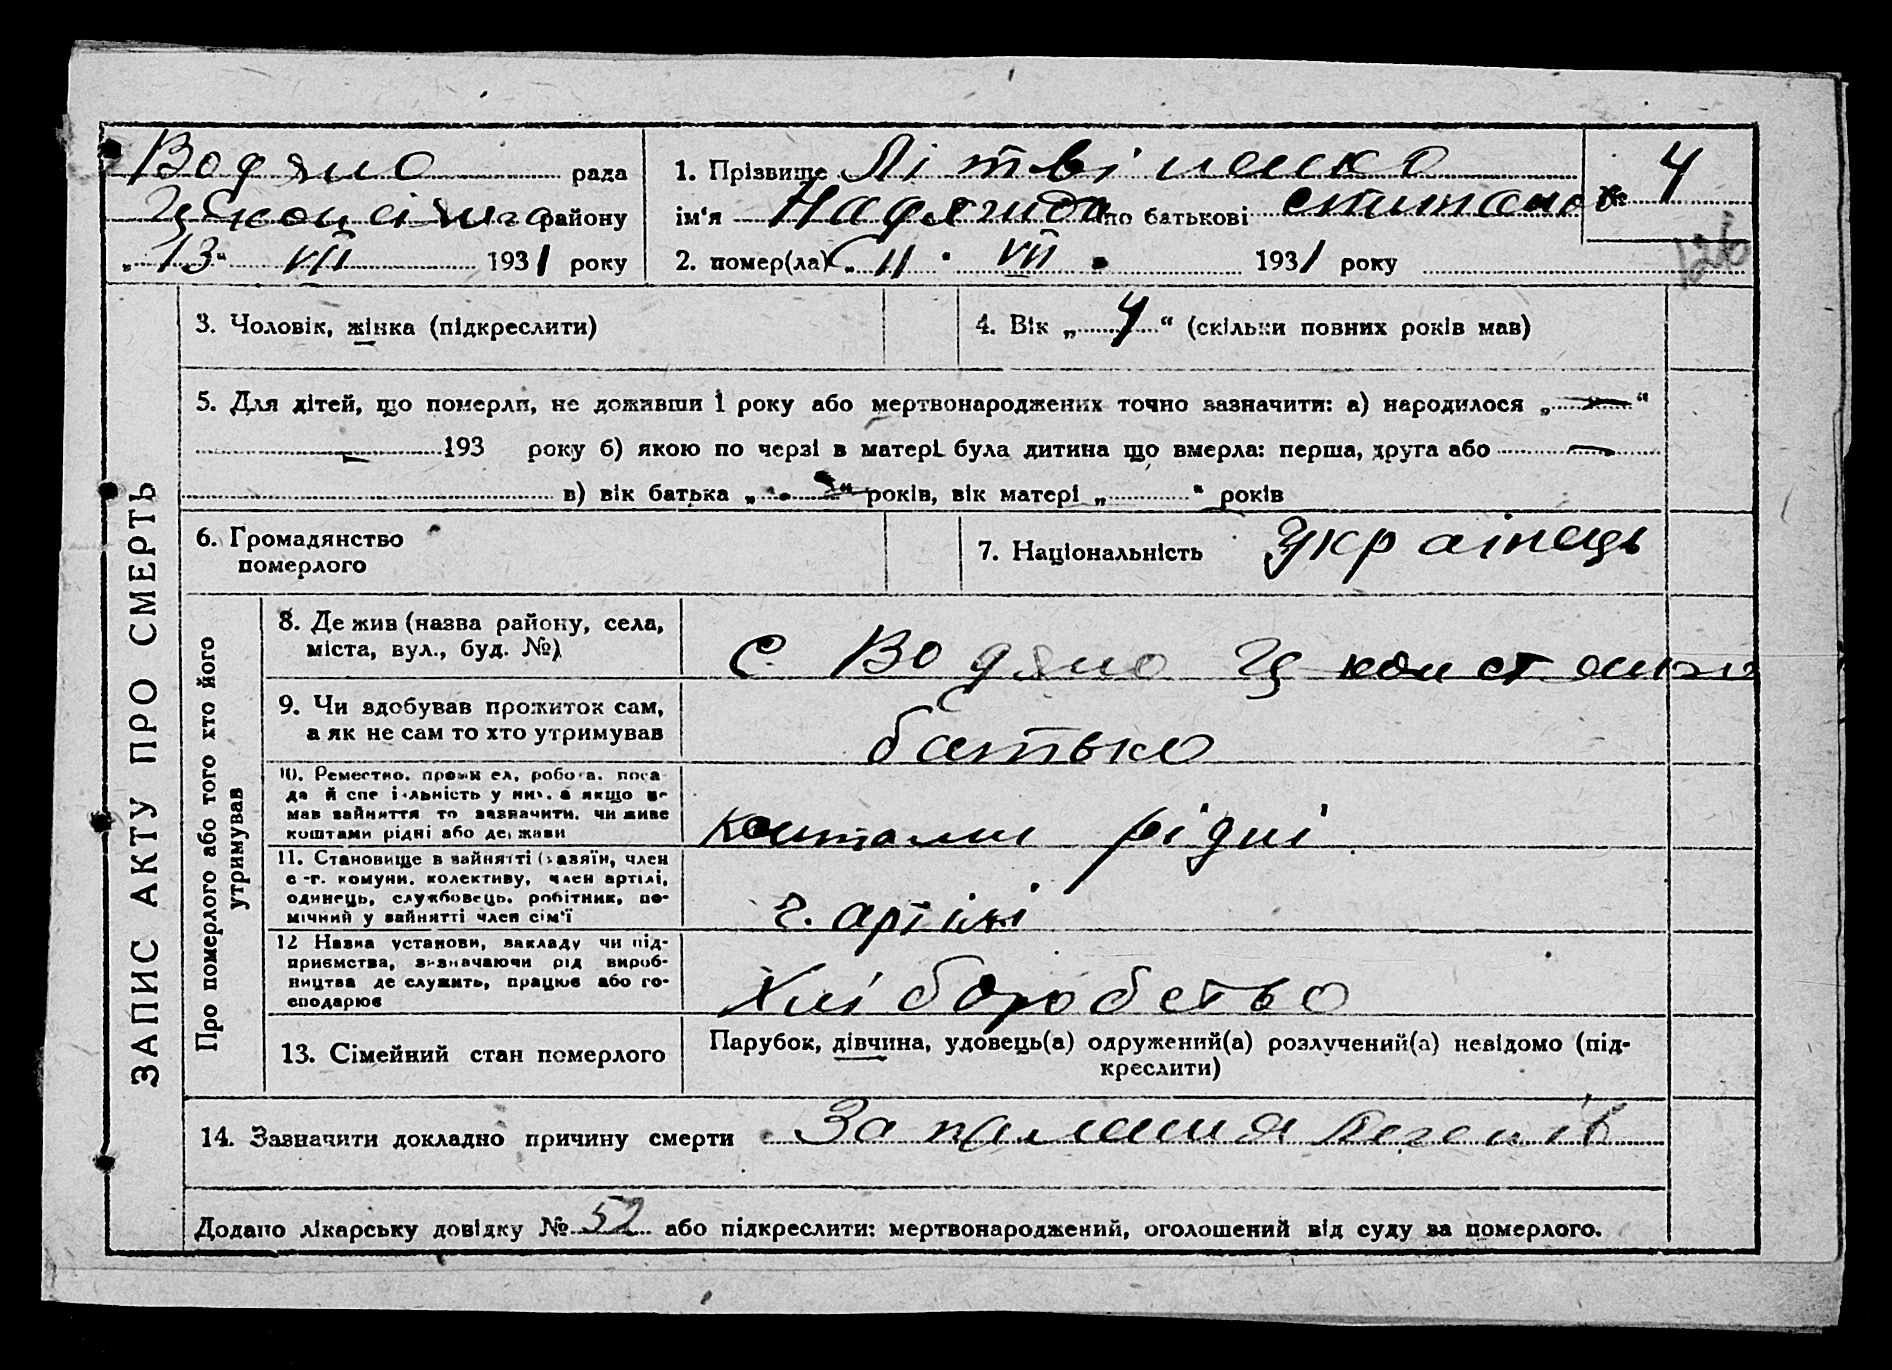 Водяно рада
району
„ 13 “ VII 1931 року
1. Прізвище Літвіненко
№ 4
ім'я Надежда по батькові
2. помер(ла) „ 11 “ VII 1931 року
126
ЗАПИС АКТУ ПРО СМЕРТЬ
3. Чоловік, жінка (підкреслити)
4. Вік „ 4 “ (скільки повних років мав)
5. Для дітей, що померли, не доживши 1 року або мертвонароджених точно зазначити: а) народилося „ — “
— 193 року б) якою по черзі в матері була дитина що вмерла: перша, друга або —
в) вік батька „ “ років, вік матері „ “ років
6. Громадянство
померлого
7. Національність Українець
Про померлого або того хто його
утримував
8. Де жив (назва району, села,
міста, вул., буд. №)
с Водяно
9. Чи вдобував прожиток сам,
а як не сам то хто утримував
батько
10. Ремество, промисел, робота, поса-
да й спеціяльність у них, а якщо не
мав зайняття то зазначити, чи живе
коштами рідні або держави
коштами рідні
11. Становище в зайнятті (хазяїн, член
с.-г. комуни, колективу, член артілі,
одинець, службовець, робітник, по-
мічний у зайнятті член сім'ї
ч. артілі
12 Назва установи, закладу чи під-
приємства, зазначаючи рід вироб-
ництва де служить, працює або го-
сподарює
Хліборобство
13. Сімейний стан померлого
Парубок, дівчина, удовець(а) одружений(а) розлучений(а) невідомо (під-
креслити)
14. Зазначити докладно причину смерти Запалення легенів
Додано лікарську довідку № 52 або підкреслити: мертвонароджений, оголошений від суду за померлого.